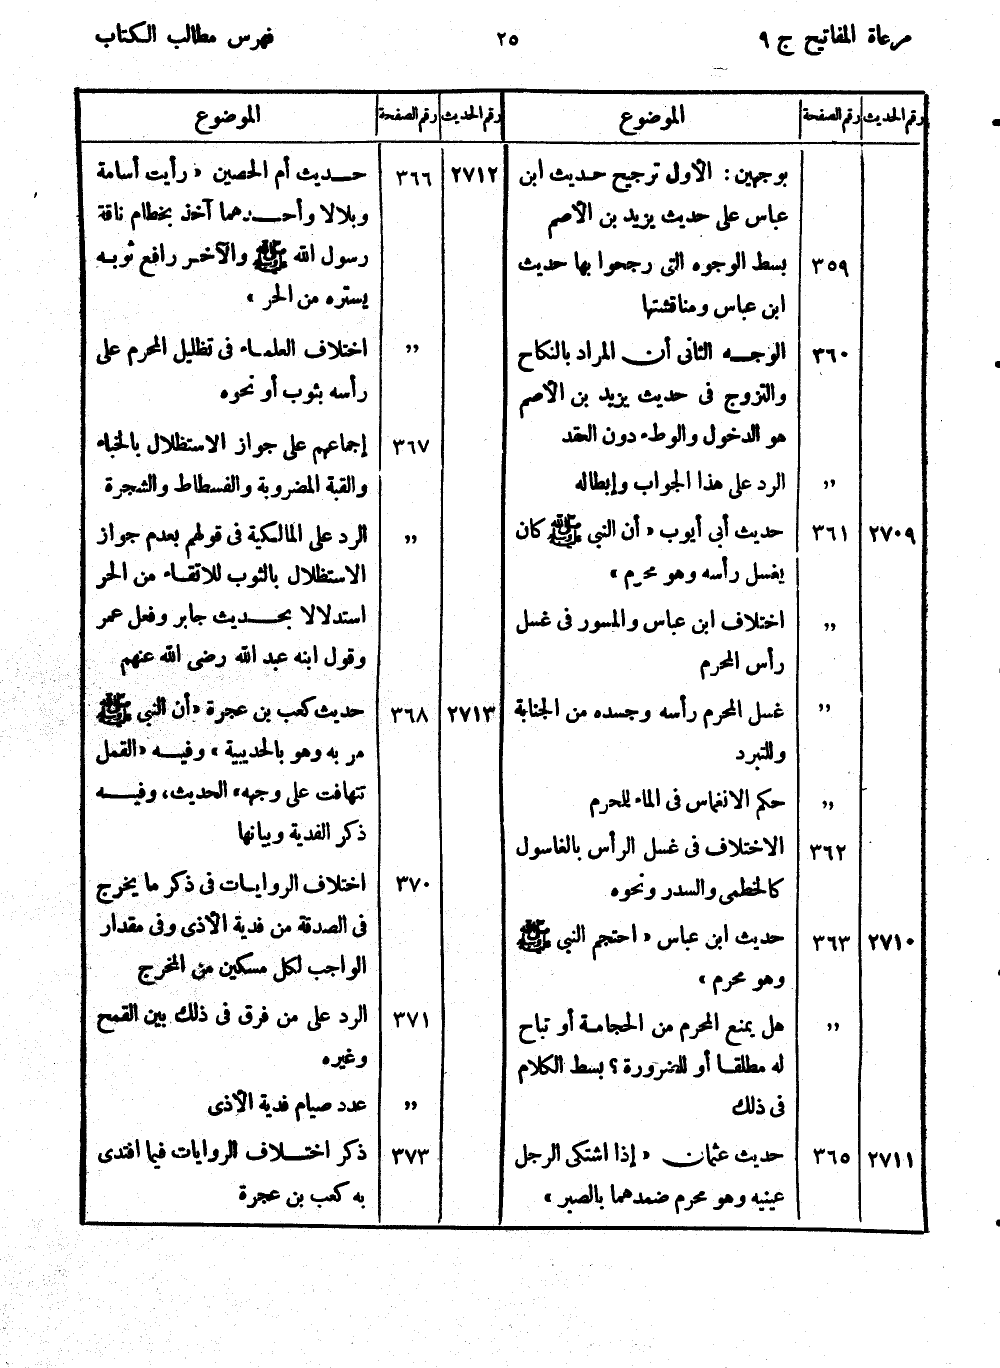 مرعاة المفاتيح ج ٩
٢٥
فهرس مطالب الكتاب
رقم الحديث رقم الصفحة الموضوع
بوجهين : الأول ترجيح حديث ابن
عباس على حديث يزيد بن الأصم
٣٥٩ بسط الوجوه التى رجحوا بها حديث
ابن عباس ومناقشتها
٣٦٠ الوجه الثانى أن المراد بالنكاح
والتزوج فى حديث يزيد بن الأصم
هو الدخول والوطء دون العقد
,, الرد على هذا الجواب وإبطاله
٢٧٠٩ ٣٦١ حديث أبى أيوب « أن النبى ﷺ كان
يغسل رأسه وهو محرم »
,, اختلاف ابن عباس والمسور فى غسل
رأس المحرم
,, غسل المحرم رأسه وجسده من الجنابة
وللتبرد
,, حكم الانغماس فى الماء للحرم
٣٦٢ الاختلاف فى غسل الرأس بالغاسول
كالخطمى والسدر ونحوه
٢٧١٠ ٣٦٣ حديث ابن عباس « احتجم النبى ﷺ
وهو محرم »
,, هل يمنع المحرم من الحجامة أو تباح
له مطلقا أو للضرورة ؟ بسط الكلام
فى ذلك
٢٧١١ ٣٦٥ حديث عثمان « إذا اشتكى الرجل
عينيه وهو محرم ضمدهما بالصبر »
رقم الحديث رقم الصفحة الموضوع
٢٧١٢ ٣٦٦ حديث أم الحصين « رأيت أسامة
وبلالا وأحدهما آخذ بخطام ناقة
رسول الله ﷺ والآخر رافع ثوبه
يستره من الحر »
,, اختلاف العلماء فى تظليل المحرم على
رأسه بثوب أو نحوه
٣٦٧ إجماعهم على جواز الاستظلال بالخباء
والقبة المضروبة والفسطاط والشجرة
,, الرد على المالكية فى قولهم بعدم جواز
الاستظلال بالثوب للاتقاء من الحر
استدلالا بحديث جابر وفعل عمر
وقول ابنه عبد الله رضى الله عنهم
٢٧١٣ ٣٦٨ حديث كعب بن عجرة «أن النبى ﷺ
مر به وهو بالحديبية » وفيه «القمل
تتهافت على وجهه» الحديث، وفيه
ذكر الفدية وبيانها
٣٧٠ اختلاف الروايات فى ذكر ما يخرج
فى الصدقة من فدية الأذى وفى مقدار
الواجب لكل مسكين من المخرج
٣٧١ الرد على من فرق فى ذلك بين القمح
وغيره
,, عدد صيام فدية الأذى
٣٧٣ ذكر اختلاف الروايات فيما افتدى
به كعب بن عجرة